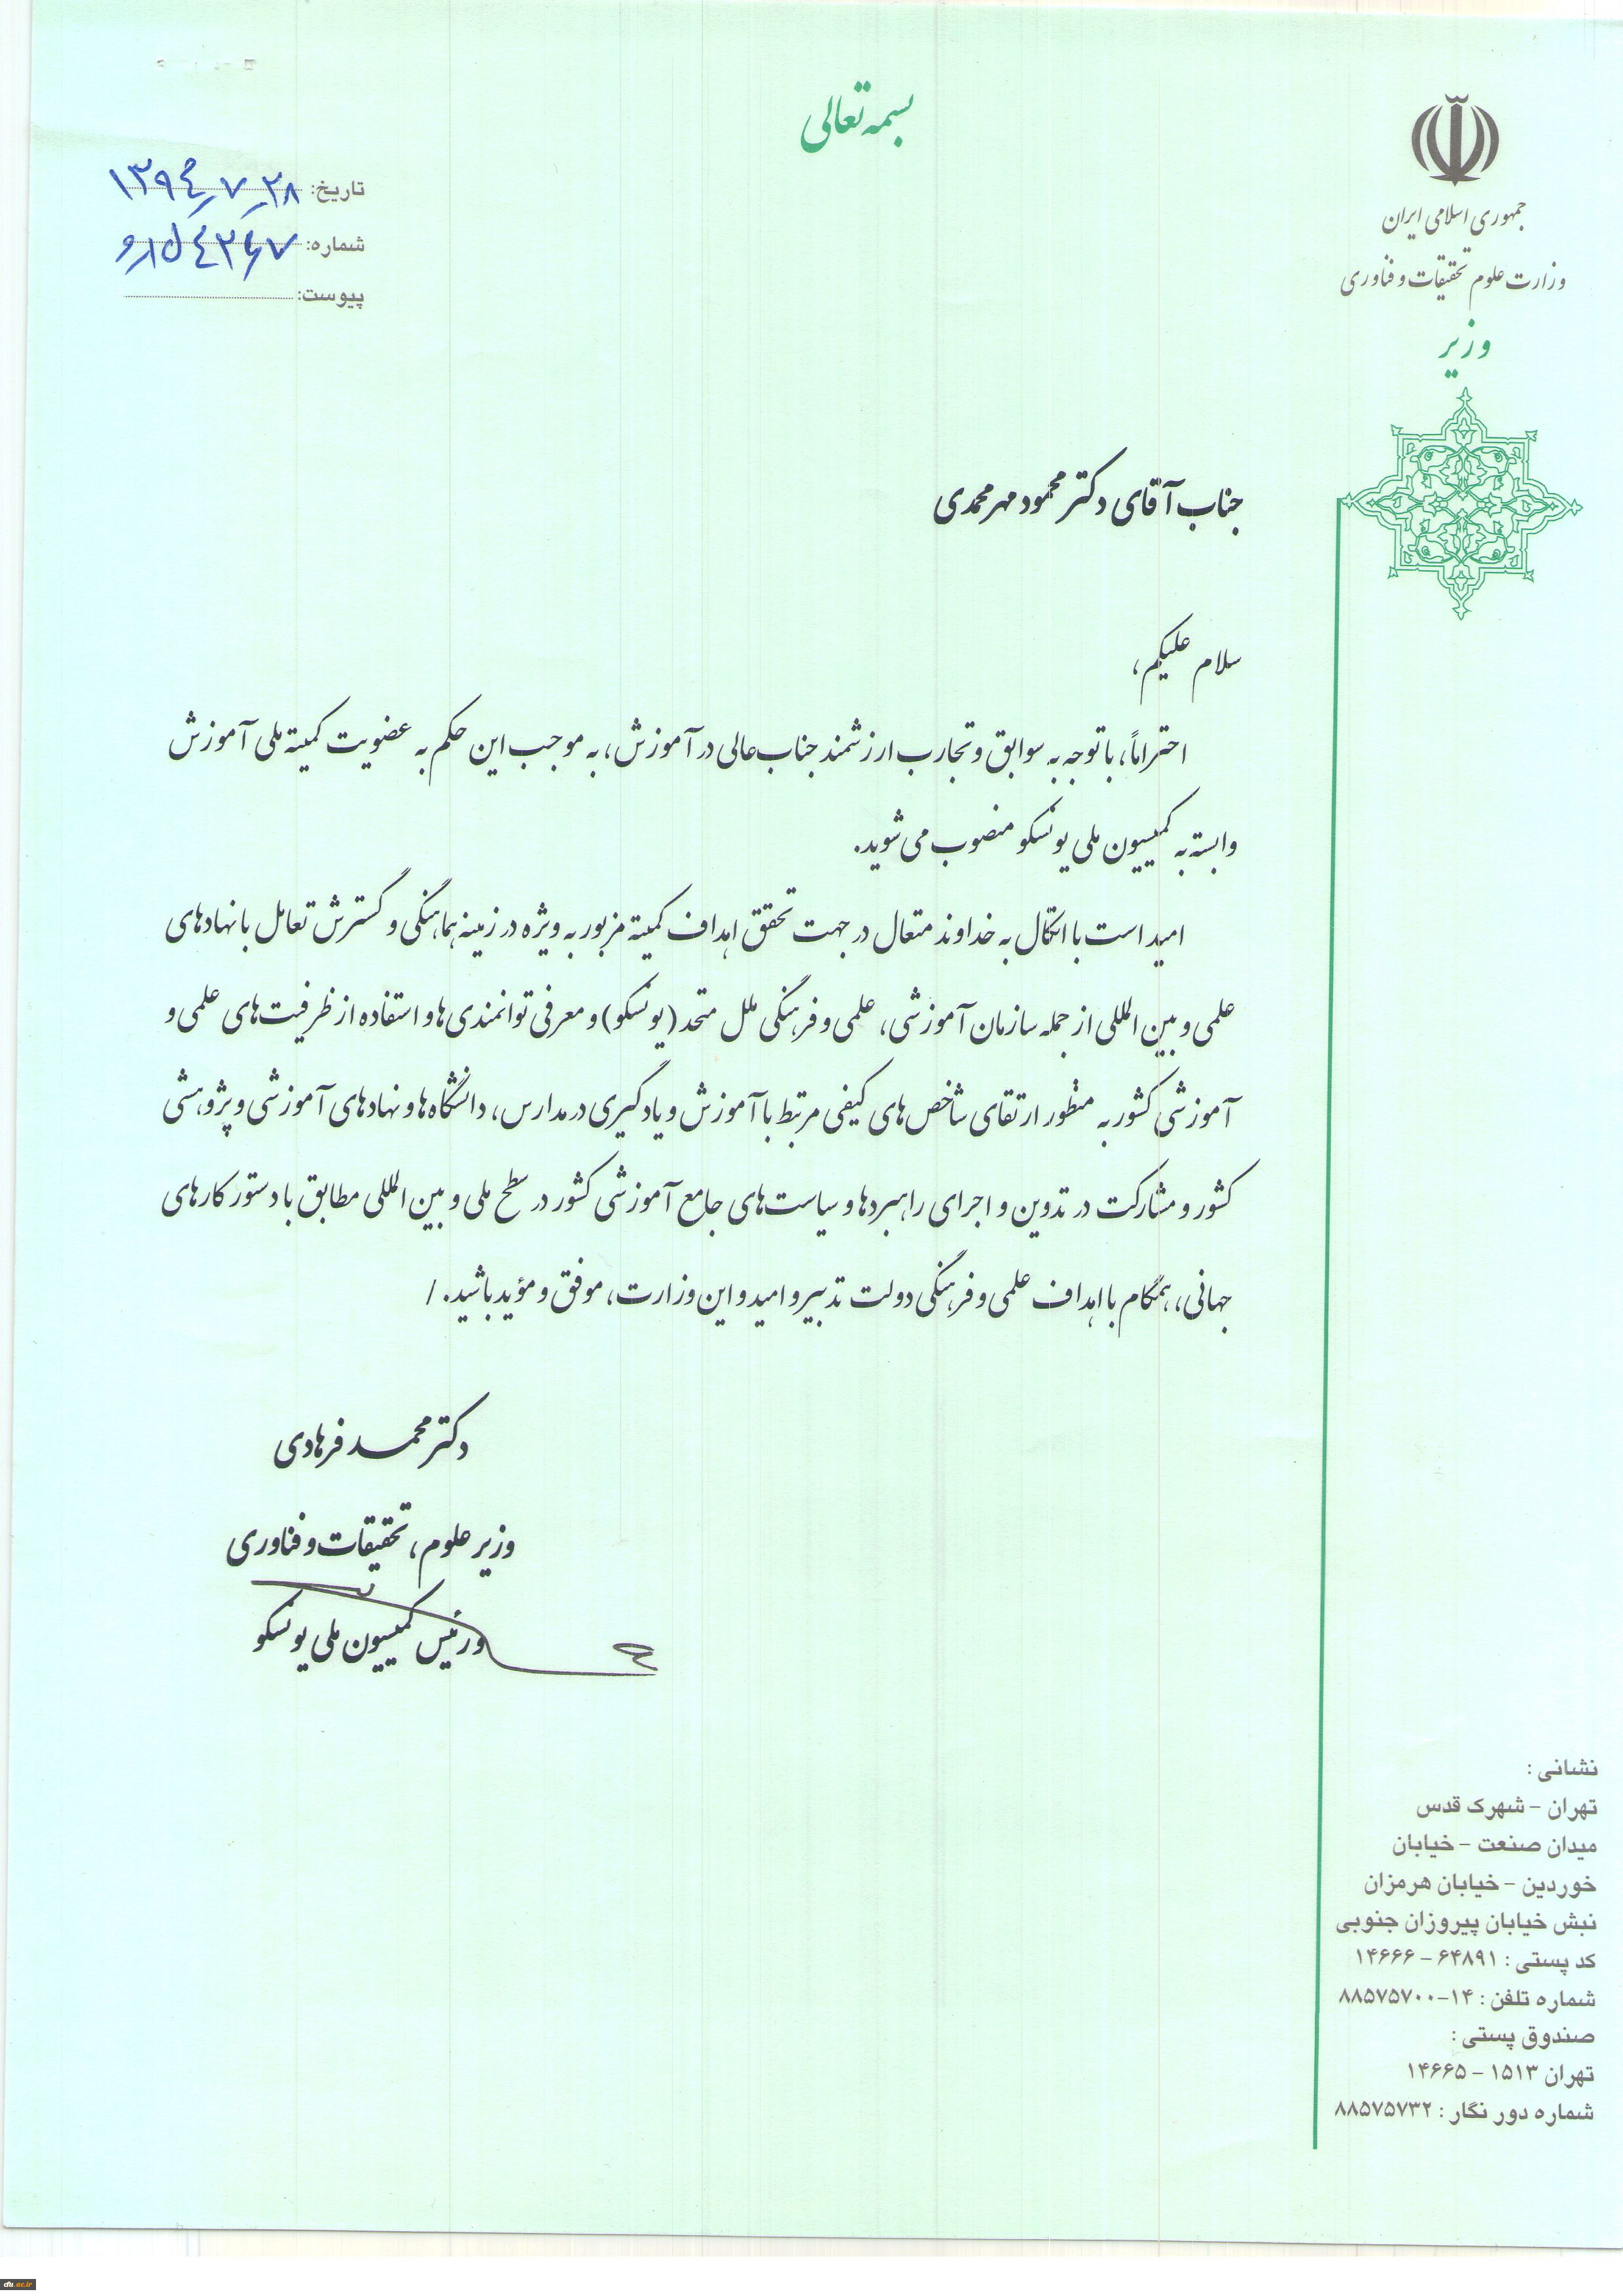 بسمه تعالی
جمهوری اسلامی ایران
وزارت علوم تحقیقات و فناوری
وزیر
تاریخ: ۱۳۹۴٫۷٫۲۸
شماره:
پیوست:
جناب آقای دکتر محمود مهرمحمدی
سلام علیکم،
احتراماً، با توجه به سوابق و تجارب ارزشمند جناب عالی در آموزش، به موجب این حکم به عضویت کمیته ملی آموزش
وابسته به کمیسیون ملی یونسکو منصوب می شوید.
امید است با اتکال به خداوند متعال در جهت تحقق اهداف کمیته مزبور به ویژه در زمینه هماهنگی و گسترش تعامل با نهادهای
علمی و بین المللی از جمله سازمان آموزشی، علمی و فرهنگی ملل متحد (یونسکو) و معرفی توانمندی ها و استفاده از ظرفیت های علمی و
آموزشی کشور به منظور ارتقای شاخص های کیفی مرتبط با آموزش و یادگیری در مدارس، دانشگاه ها و نهادهای آموزشی و پژوهشی
کشور و مشارکت در تدوین و اجرای راهبردها و سیاست های جامع آموزشی کشور در سطح ملی و بین المللی مطابق با دستور کارهای
جهانی، همگام با اهداف علمی و فرهنگی دولت تدبیر و امید و این وزارت، موفق و مؤید باشید. /
دکتر محمد فرهادی
وزیر علوم، تحقیقات و فناوری
و رئیس کمیسیون ملی یونسکو
نشانی :
تهران - شهرک قدس
میدان صنعت - خیابان
خوردین - خیابان هرمزان
نبش خیابان پیروزان جنوبی
کد پستی : ۶۴۸۹۱ - ۱۴۶۶۶
شماره تلفن : ۱۴-۸۸۵۷۵۷۰۰
صندوق پستی :
تهران ۱۵۱۳ - ۱۴۶۶۵
شماره دور نگار : ۸۸۵۷۵۷۳۲
cfu.ac.ir